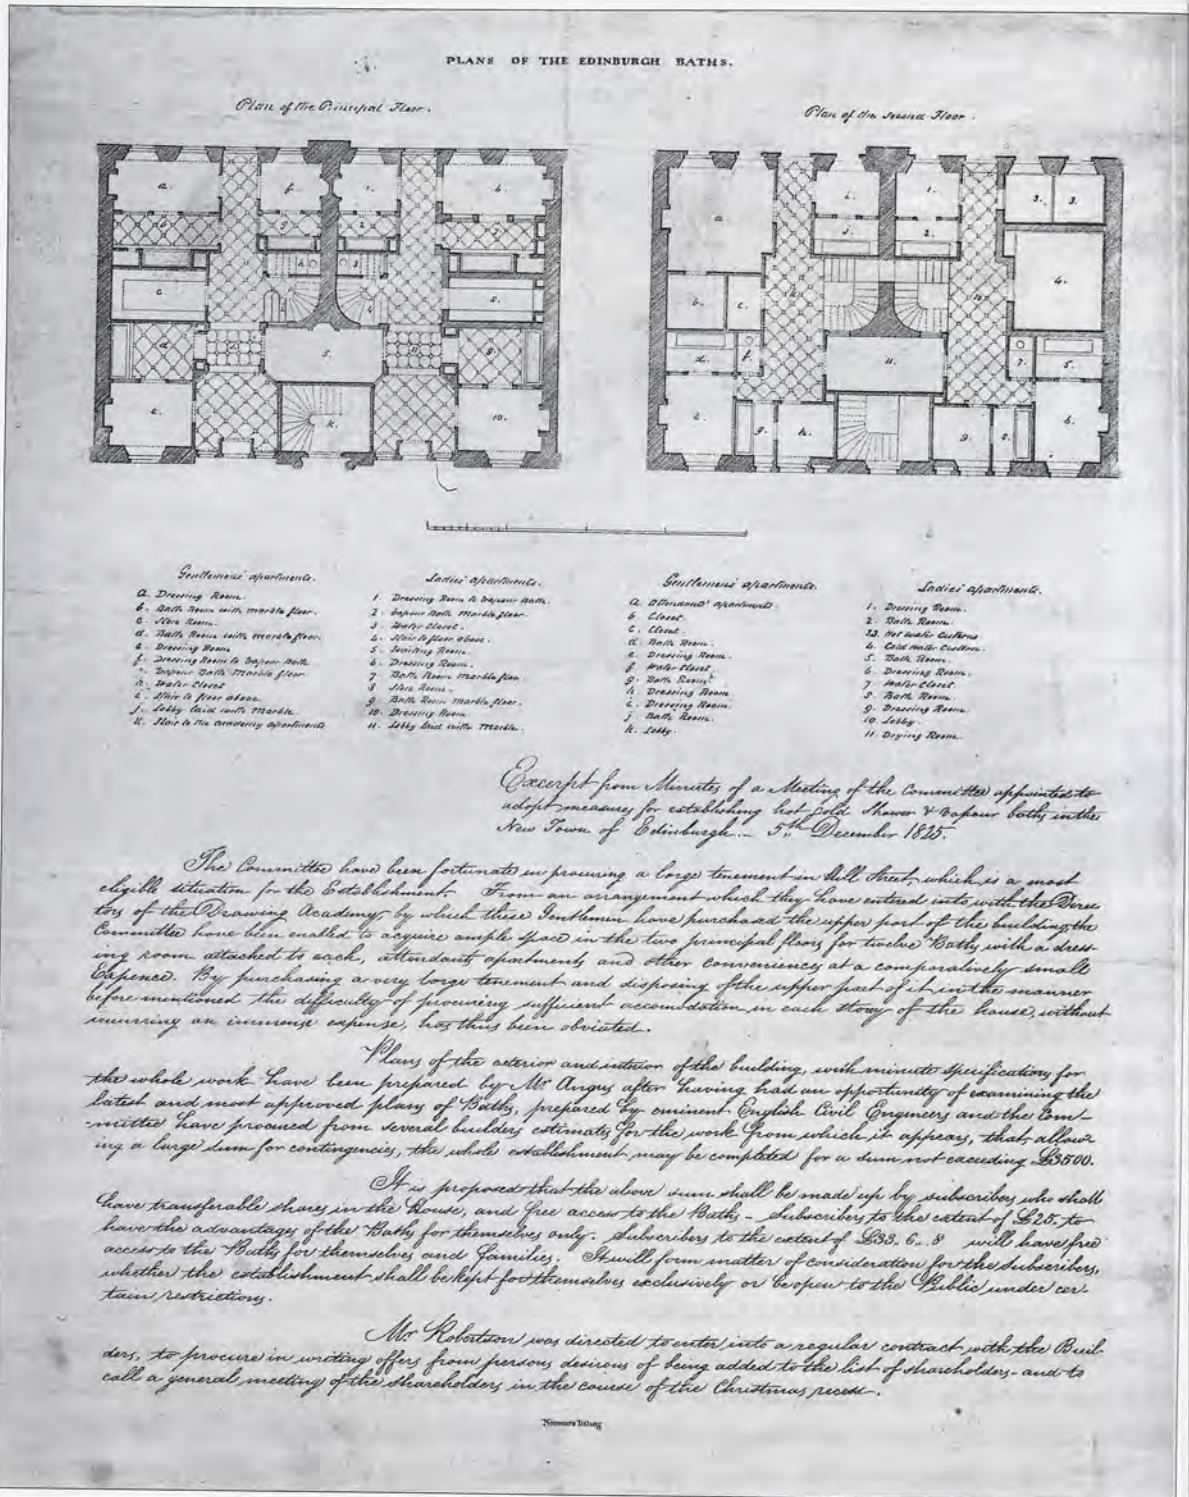 PLANS OF THE EDINBURGH BATHS.
Plan of the Principal Floor.
Plan of the second Floor.
Gentlemens' apartments.
a. Dressing Room.
b. Bath Room with marble floor.
c. Store Room.
d. Bath Room with marble floor.
e. Dressing Room
f. Dressing Room to Vapour Bath
Vapour Bath Marble floor
h. Water Closet
i. Stair to floor above.
j. Lobby laid with Marble
k. Stair to the academy apartments
Ladies' apartments.
1. Dressing Room to Vapour Bath.
2. Vapour Bath Marble floor.
3. Water Closet.
4. Stair to floor above.
5. Waiting Room.
6. Dressing Room.
7. Bath Room Marble floor
8. Store Room.
9. Bath Room marble floor.
10. Dressing Room
11. Lobby laid with Marble.
Gentlemens' apartments.
a. Attendants' apartments
b. Closet.
c. Closet.
d. Bath Room.
e. Dressing Room.
f. Water Closet.
g. Bath Room.
h. Dressing Room
i. Dressing Room.
j. Bath Room.
k. Lobby.
Ladies' apartments.
1. Dressing Room.
2. Bath Room.
33. Hot water Cisterns
4. Cold Water Cistern.
5. Bath Room.
6. Dressing Room.
7. Water Closet.
8. Bath Room.
9. Dressing Room.
10. Lobby.
11. Drying Room.
Excerpt from Minutes of a Meeting of the Committee appointed to
adopt measures for establishing hot cold Shower & Vapour baths in the
New Town of Edinburgh. — 5th December 1825.
The Committee have been fortunate in procuring a large tenement in Hill Street, which is a most
eligible situation for the Establishment. From an arrangement which they have entered into with the Direc
tors of the Drawing Academy, by which these Gentlemen have purchased the upper part of the building, the
Committee have been enabled to acquire ample space in the two principal floors for twelve Baths, with a dress-
ing room attached to each, attendants apartments and other conveniences at a comparatively small
Expence. By purchasing a very large tenement and disposing of the upper part of it in the manner
before mentioned the difficulty of procuring sufficient accomodation in each story of the house, without
incurring an immense expense, has thus been obviated.
Plans of the exterior and interior of the building, with minute specifications for
the whole work have been prepared by Mr Angus after having had an opportunity of examining the
latest and most approved plans of Baths, prepared by eminent English Civil Engineers and the Com-
-mittee have procured from several builders estimates for the work from which it appears, that, allow-
ing a large sum for contingencies, the whole establishment may be completed for a sum not exceeding £3500.
It is proposed that the above sum shall be made up by subscribers who shall
have transferable shares in the House, and free access to the Baths – Subscribers to the extent of £25. to
have the advantages of the Baths for themselves only. Subscribers to the extent of £33..6..8 will have free
access to the Baths for themselves and families. It will form matter of consideration for the subscribers,
whether the establishment shall be kept for themselves exclusively or be open to the Public under cer-
tain restrictions.
Mr Robertson was directed to enter into a regular contract with the Buil-
ders, to procure in writing offers from persons desirous of being added to the list of shareholders - and to
call a general meeting of the shareholders in the course of the Christmas recess.